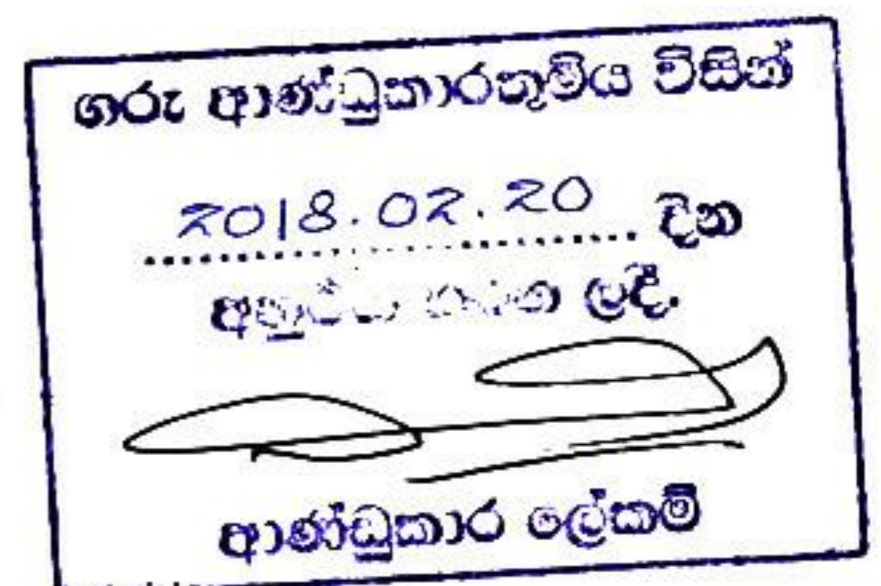 ගරු ආණ්ඩුකාරතුමිය විසින්
2018.02.20 දින
අනුමත කරන ලදී.
ආණ්ඩුකාර ලේකම්